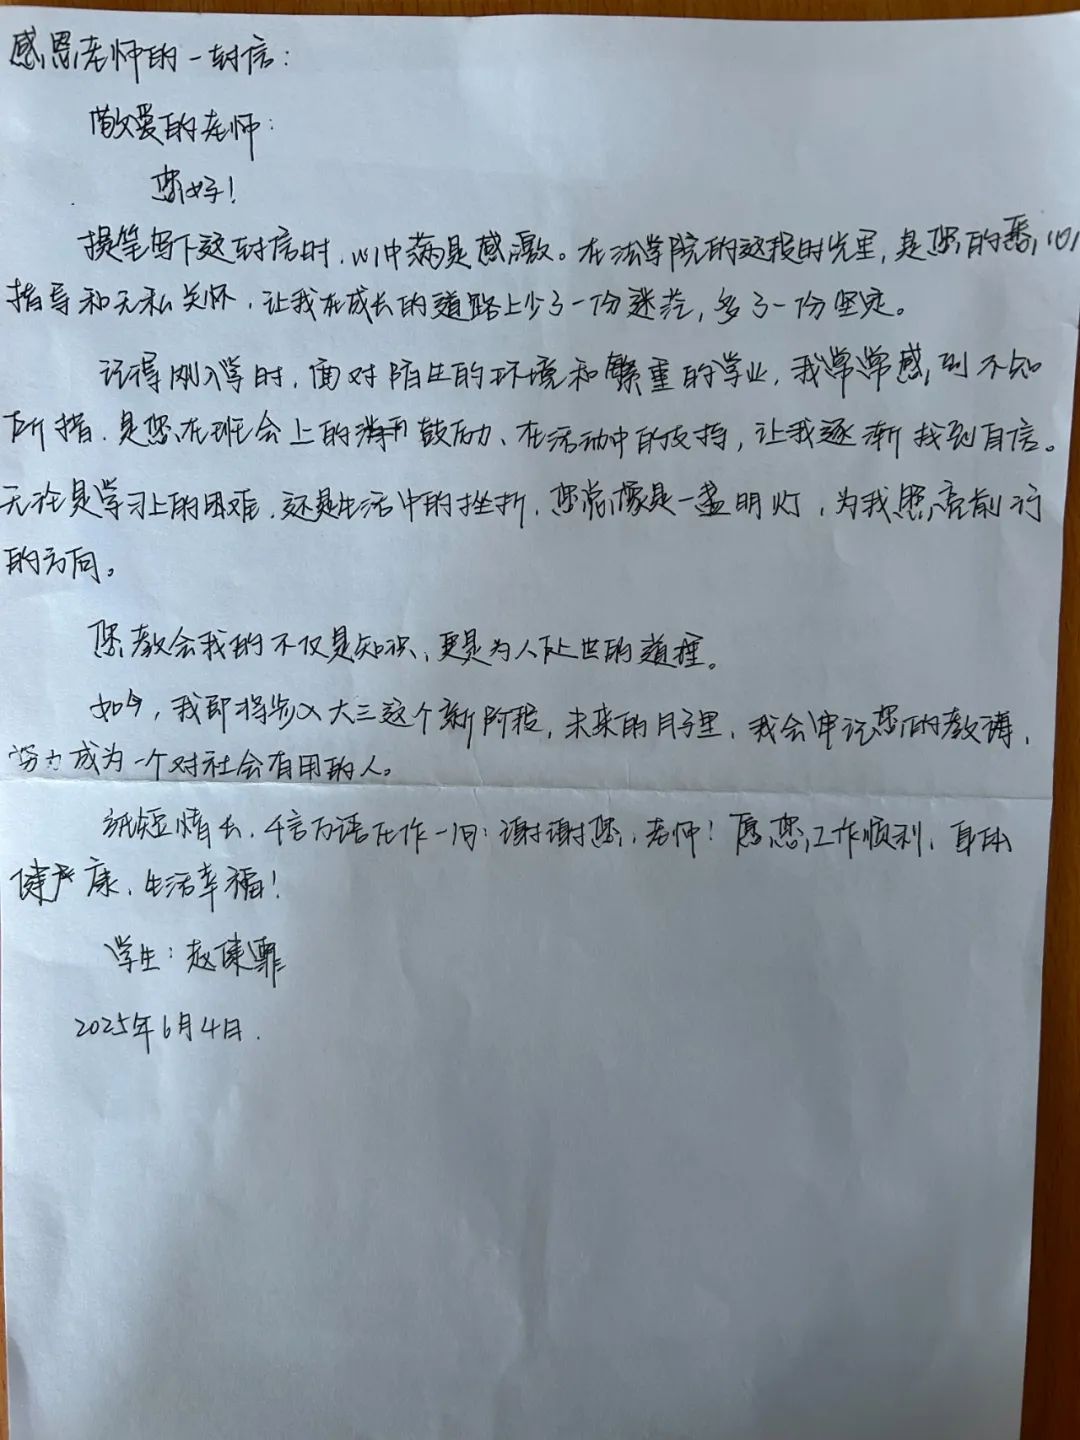 感恩老师的一封信:
敬爱的老师:
您好!
提笔写下这封信时,心中满是感激。在法学院的这段时光里,是您的悉心
指导和无私关怀,让我在成长的道路上少了一份迷茫,多了一份坚定。
记得刚入学时,面对陌生的环境和繁重的学业,我常常感到不知
所措.是您在班会上的鼓励、在活动中的支持,让我逐渐找到自信。
无论是学习上的困难,还是生活中的挫折,您总像是一盏明灯,为我照亮前行
的方向。
您教会我的不仅是知识,更是为人处世的道理。
如今,我即将步入大三这个新阶段,未来的日子里,我会牢记您的教诲,
努力成为一个对社会有用的人。
纸短情长,千言万语汇作一句:谢谢您,老师!愿您工作顺利、身体
健康、生活幸福!
学生:赵
2025年6月4日.